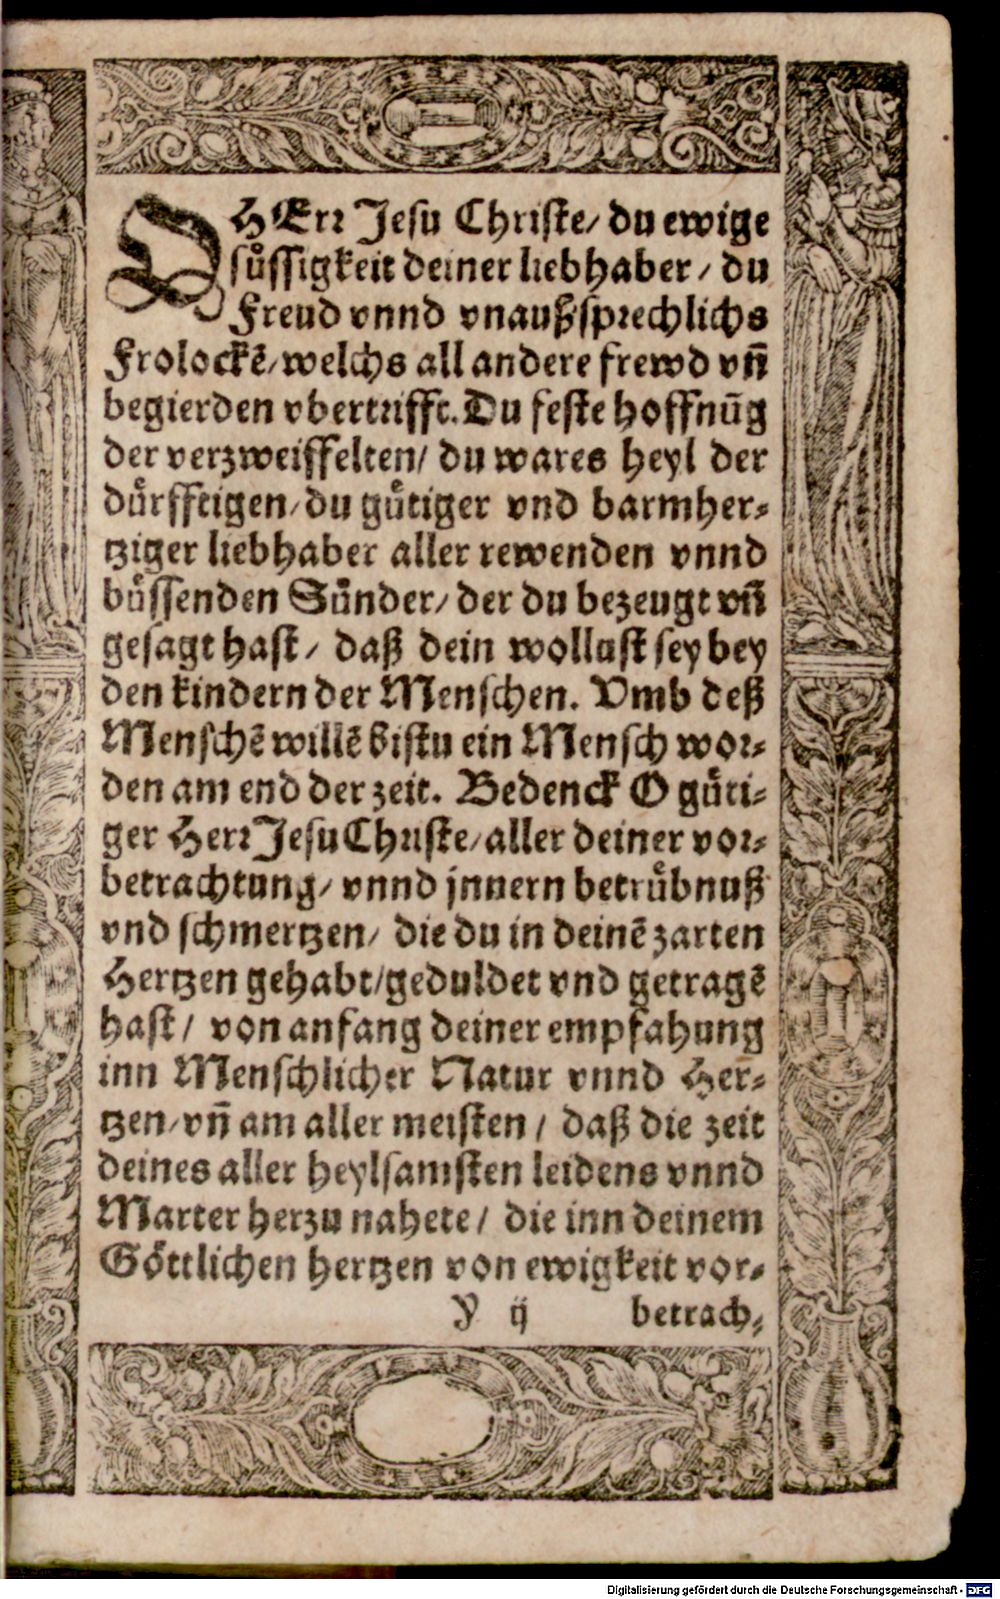 O HErr Jesu Christe/ du ewige
suͤssigkeit deiner liebhaber/ du
Freud vnnd vnaußsprechlichs
Frolockē/ welchs all andere frewd vn̄
begierden vbertrifft. Du feste hoffnūg
der verzweiffelten/ du wares heyl der
duͤrfftigen/ du guͤtiger vnd barmher-
tziger liebhaber aller rewenden vnnd
buͤssenden Suͤnder/ der du bezeugt vn̄
gesagt hast/ daß dein wollust sey bey
den kindern der Menschen. Vmb deß
Menschē willē bistu ein Mensch wor-
den am end der zeit. Bedenck O guͤti-
ger Herr Jesu Christe/ aller deiner vor-
betrachtung/ vnnd jnnern betruͤbnuß
vnd schmertzen/ die du in deinē zarten
Hertzen gehabt/ geduldet vnd getragē
hast/ von anfang deiner empfahung
inn Menschlicher Natur vnnd Her-
tzen/ vn̄ am aller meisten/ daß die zeit
deines aller heylsamsten leidens vnnd
Marter herzu nahete/ die inn deinem
Goͤttlichen hertzen von ewigkeit vor-
Y ij betrach-
Digitalisierung gefördert durch die Deutsche Forschungsgemeinschaft - DFG